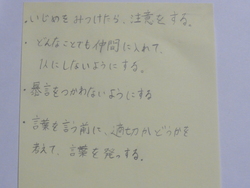 ・いじめをみつけたら、注意をする。
・どんなことでも仲間に入れて、
1人にしないようにする。
・暴言をつかわないようにする
・言葉を言う前に、適切かどうかを
考えて、言葉を発っする。